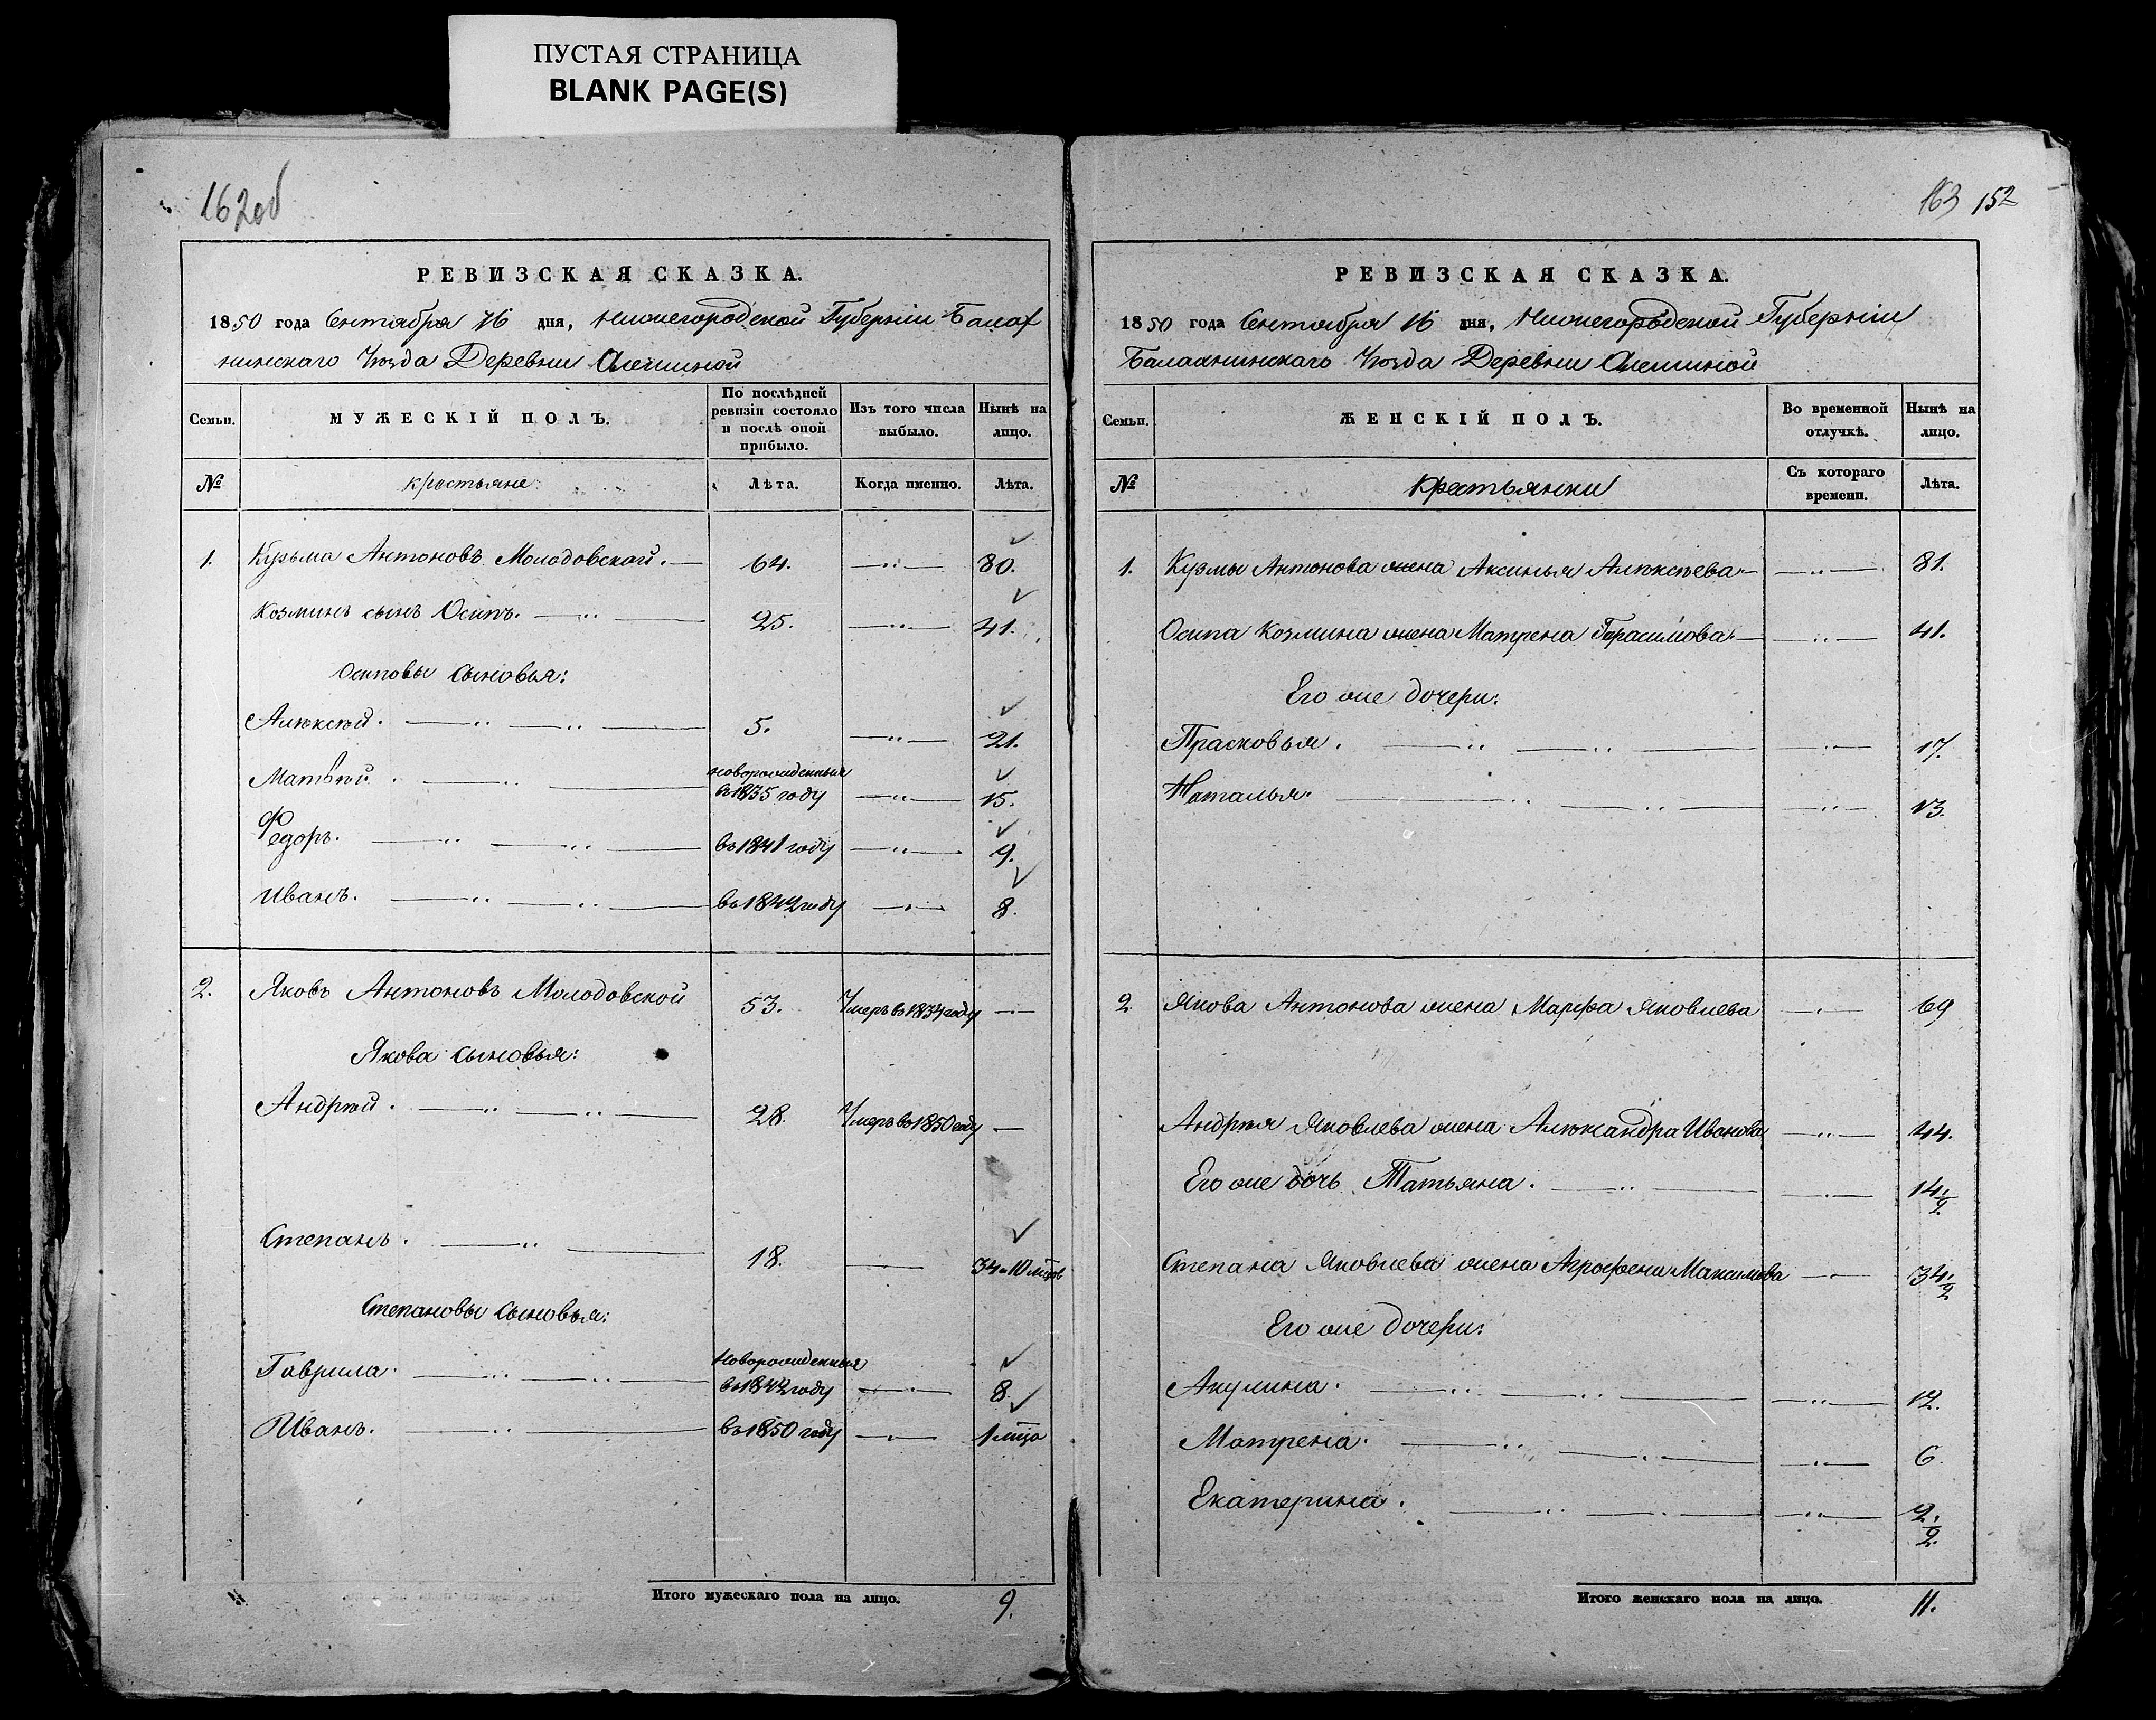 ПУСТАЯ СТРАНИЦА
BLANK PAGE(S)
162об
РЕВИЗСКАЯ СКАЗКА.
1850 года Сентября 16 дня, Нижегородской Губерніи Балах
нинскаго Уѣзда Деревни Алешиной
Семьи. МУЖЕСКІЙ ПОЛЪ. По послѣдней ревизіи состояло и послѣ оной прибыло. Изъ того числа выбыло. Нынѣ на лицо.
№ крестьяне. Лѣта. Когда именно. Лѣта.
1. Кузьма Антоновъ Молодовской. 64. 80.
Козминъ сынъ Осипъ. 25. 41.
Осиповы сыновья:
Алѣксѣй. 5. 21.
Матвѣй. новорожденныя въ 1835 году 15.
Федоръ. въ 1841 году 9.
Иванъ. въ 1842 году 8.
2. Яковъ Антоновъ Молодовской 53. Умеръ въ году
Якова сыновья:
Андрѣй. 28. Умеръ въ 1850 году
Степанъ. 18. 34 и 10 мѣцов
Степановы сыновья:
Гаврила. Новорожденныя въ 1842 году 8.
Иванъ. въ 1850 году 1 мѣца
Итого мужескаго пола на лицо. 9.
163 152
РЕВИЗСКАЯ СКАЗКА.
1850 года Сентября 16 дня, Нижегородской Губерніи
Балахнинскаго Уѣзда Деревни Алешиной
Семьи. ЖЕНСКІЙ ПОЛЪ. Во временной отлучкѣ. Нынѣ на лицо.
№ Крестьянки Съ котораго времени. Лѣта.
1. Кузмы Антонова жена Аксинья Алѣксѣева 81.
Осипа Козмина жена Матрена Герасимова 41.
Его же дочери:
Прасковья. 17.
Наталья. 13.
2. Якова Антонова жена Марфа Яковлева 69
Андрѣя Яковлева жена Алѣксандра Иванова 44.
Его же дочь Татьяна. 14 1/2.
Степана Яковлева жена Аграфена Максимова 34 1/2
Его же дочери:
Акулина. 12.
Матрена. 6.
Екатерина. 2 1/2.
Итого женскаго пола на лицо. 11.